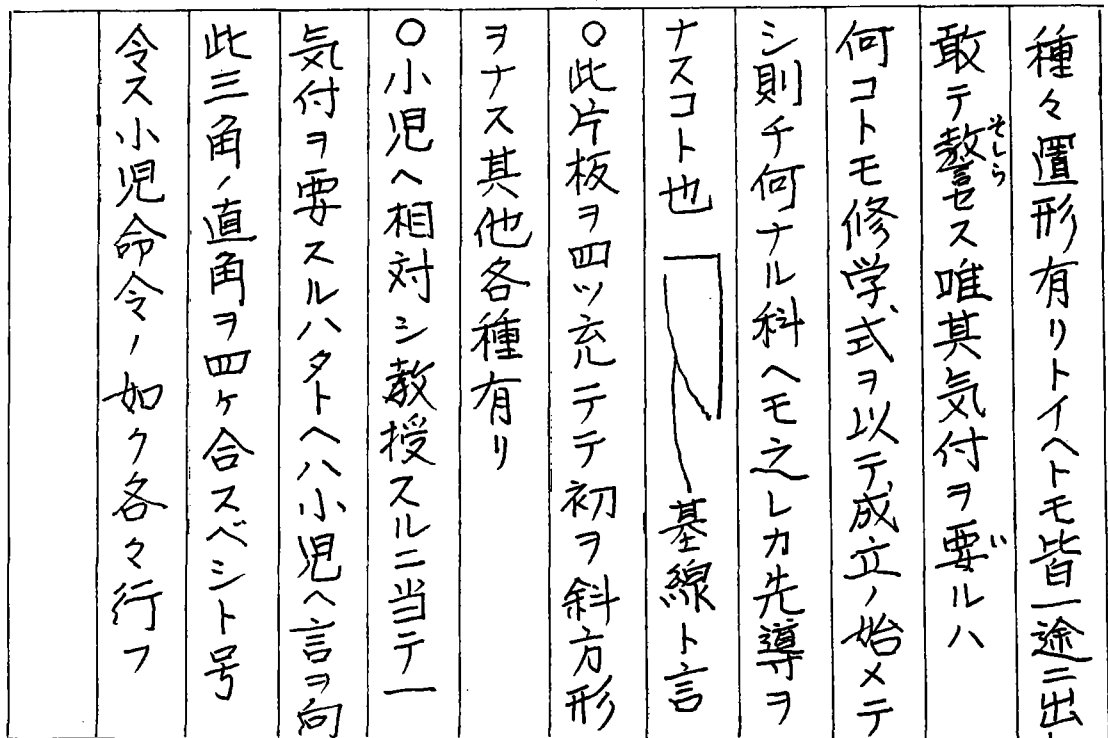 種々置形有リトイヘトモ皆一途ニ出
敢テ讃セス唯其気付ヲ要ルハ
何コトモ修学式ヲ以テ成立ノ始メテ
シ則チ何ナル科ヘモ之レカ先導ヲ
ナスコト也 基線ト言
○此片板ヲ四ッ充テテ初ヲ斜方形
ヲナス其他各種有リ
○小児ヘ相対シ教授スルニ当テ一
気付ヲ要スルハタトヘハ小児ヘ言ヲ向
此三角ノ直角ヲ四ケ合スベシト号
令ス小児命令ノ如ク各々行フ